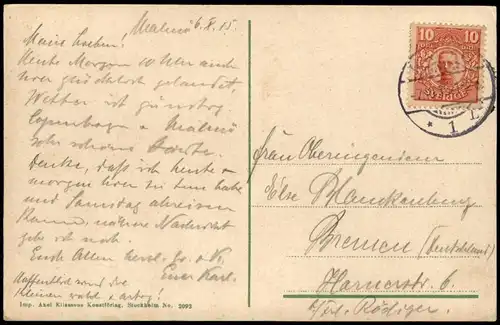 Malmö 6.X.15.
Meine Lieben!
Heute Morgen 10 Uhr sind
hier glücklich gelandet,
Wetter ist günstig
Copenhagen u Malmö
sehr schöne Städte.
Denke, daß ich heute u
morgen hier zu tun habe
und Samstag abreisen
kann, nähere Nachricht
gebe ich noch.
Euch Allen herzl. Gr. u. K.
Euer Karl.
Hoffentlich sind die
Kleinen wohl u artig!
Imp. Axel Eliassons Konstförlag, Stockholm No. 2092
10 10
SVERIGE
1
Frau Oberingenieur
Else Blankenburg
Bremen (Deutschland)
Hornerstr. 6.
b/Frl. Rödiger.